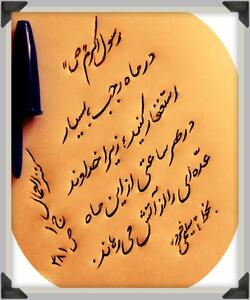 رسول اکرم "ص"
در ماه رجب، بسیار
استغفار کنید؛ زیرا خداوند
در هر ساعتی از این ماه
عدّه‌ای را از آتش می‌رهاند.
کنزالعمال
ج ۱
ص ۴۸۱
بخط: